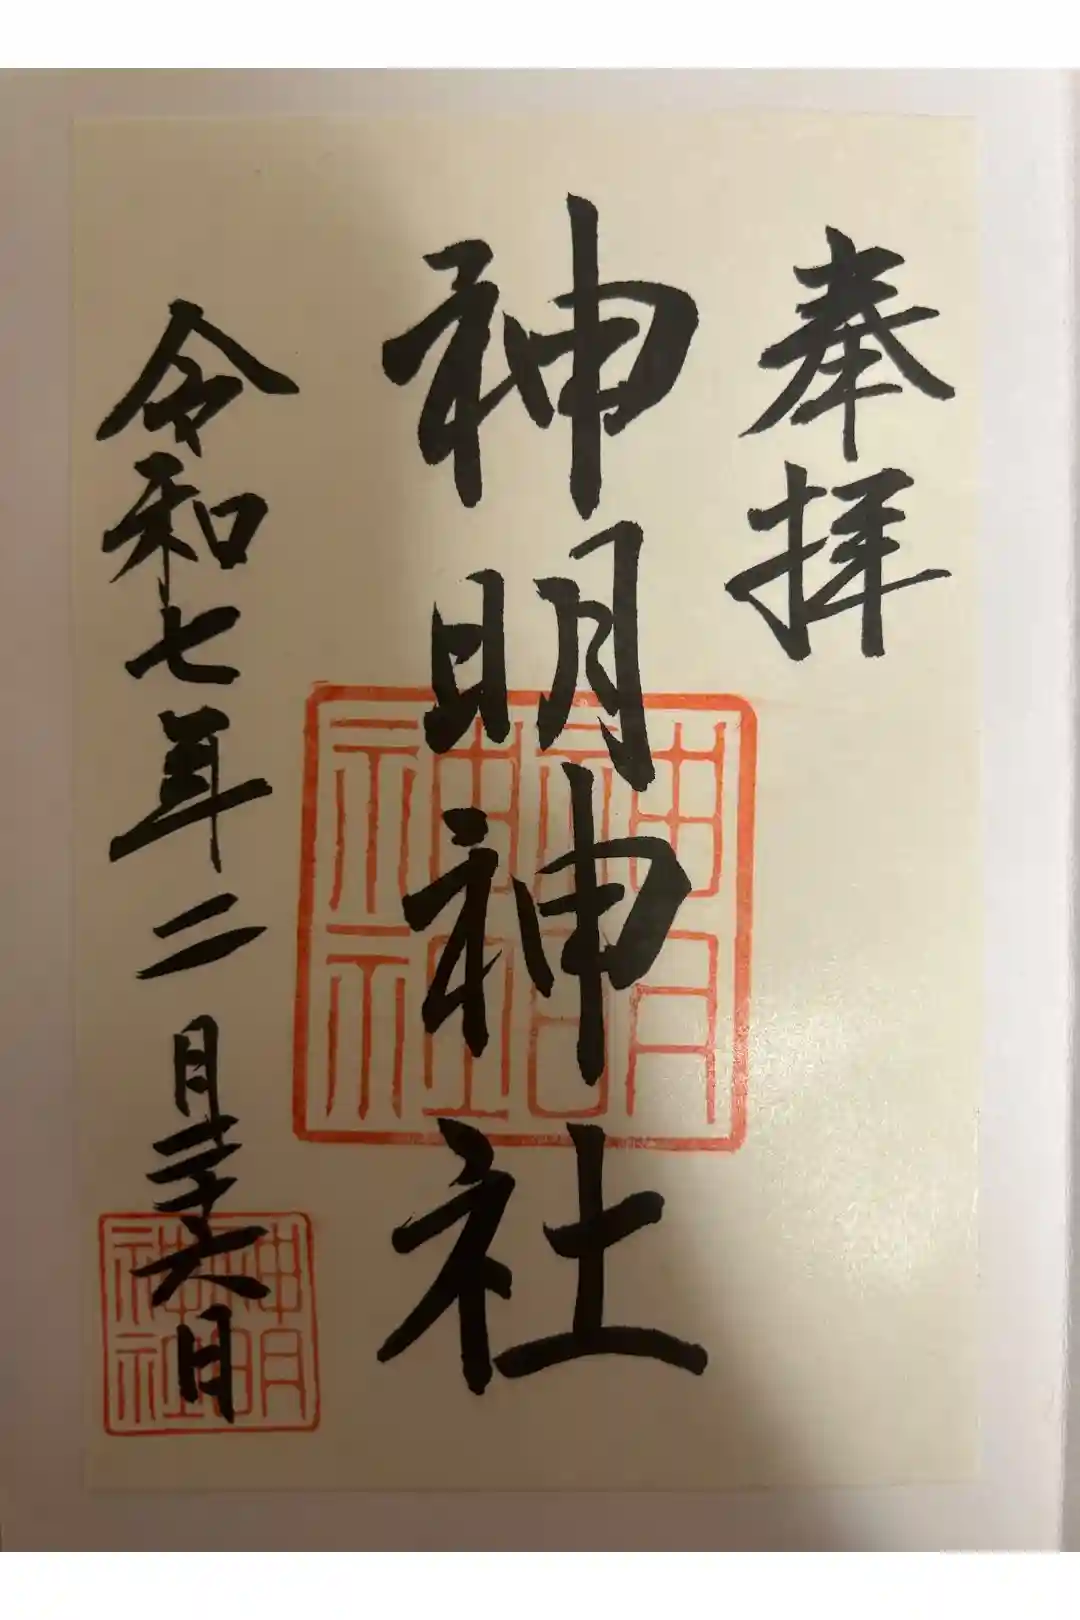 奉拝
神明神社
令和七年二月二十六日
神明
神社
神明
神社